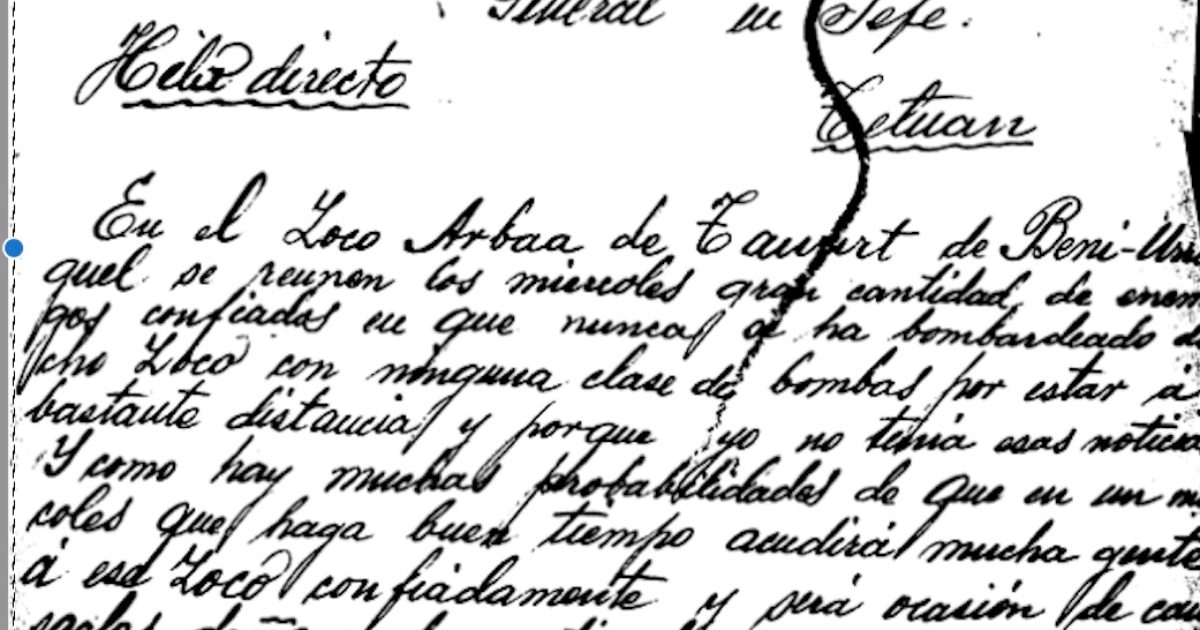 General en Jefe.
Hélix directo
Tetuan
En el Zoco Arbaa de Taurirt de Beni-
quel se reunen los miercoles gran cantidad de enem
gos confiados en que nunca se ha bombardeado di
cho Zoco con ninguna clase de bombas por estar á
bastante distancia y porque yo no tenia esas noticias
Y como hay muchas probabilidades de que en un mi
coles que haga buen tiempo acudirá mucha gente
á ese Zoco confiadamente y será ocasión de cau